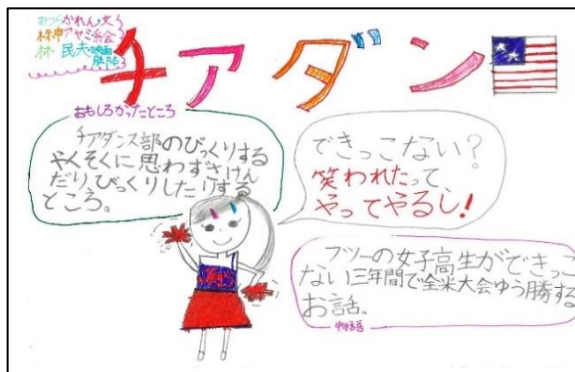 みうらかれん・文
榊アヤミ・絵
林民夫・映画
チアダン
おもしろかったところ
チアダンス部のびっくりする
やくそくに思わずさけん
だりびっくりしたりする
ところ。
できっこない?
笑われたって
やってやるし!
フツーの女子高生ができっこ
ない三年間で全米大会ゆう勝する
お話。